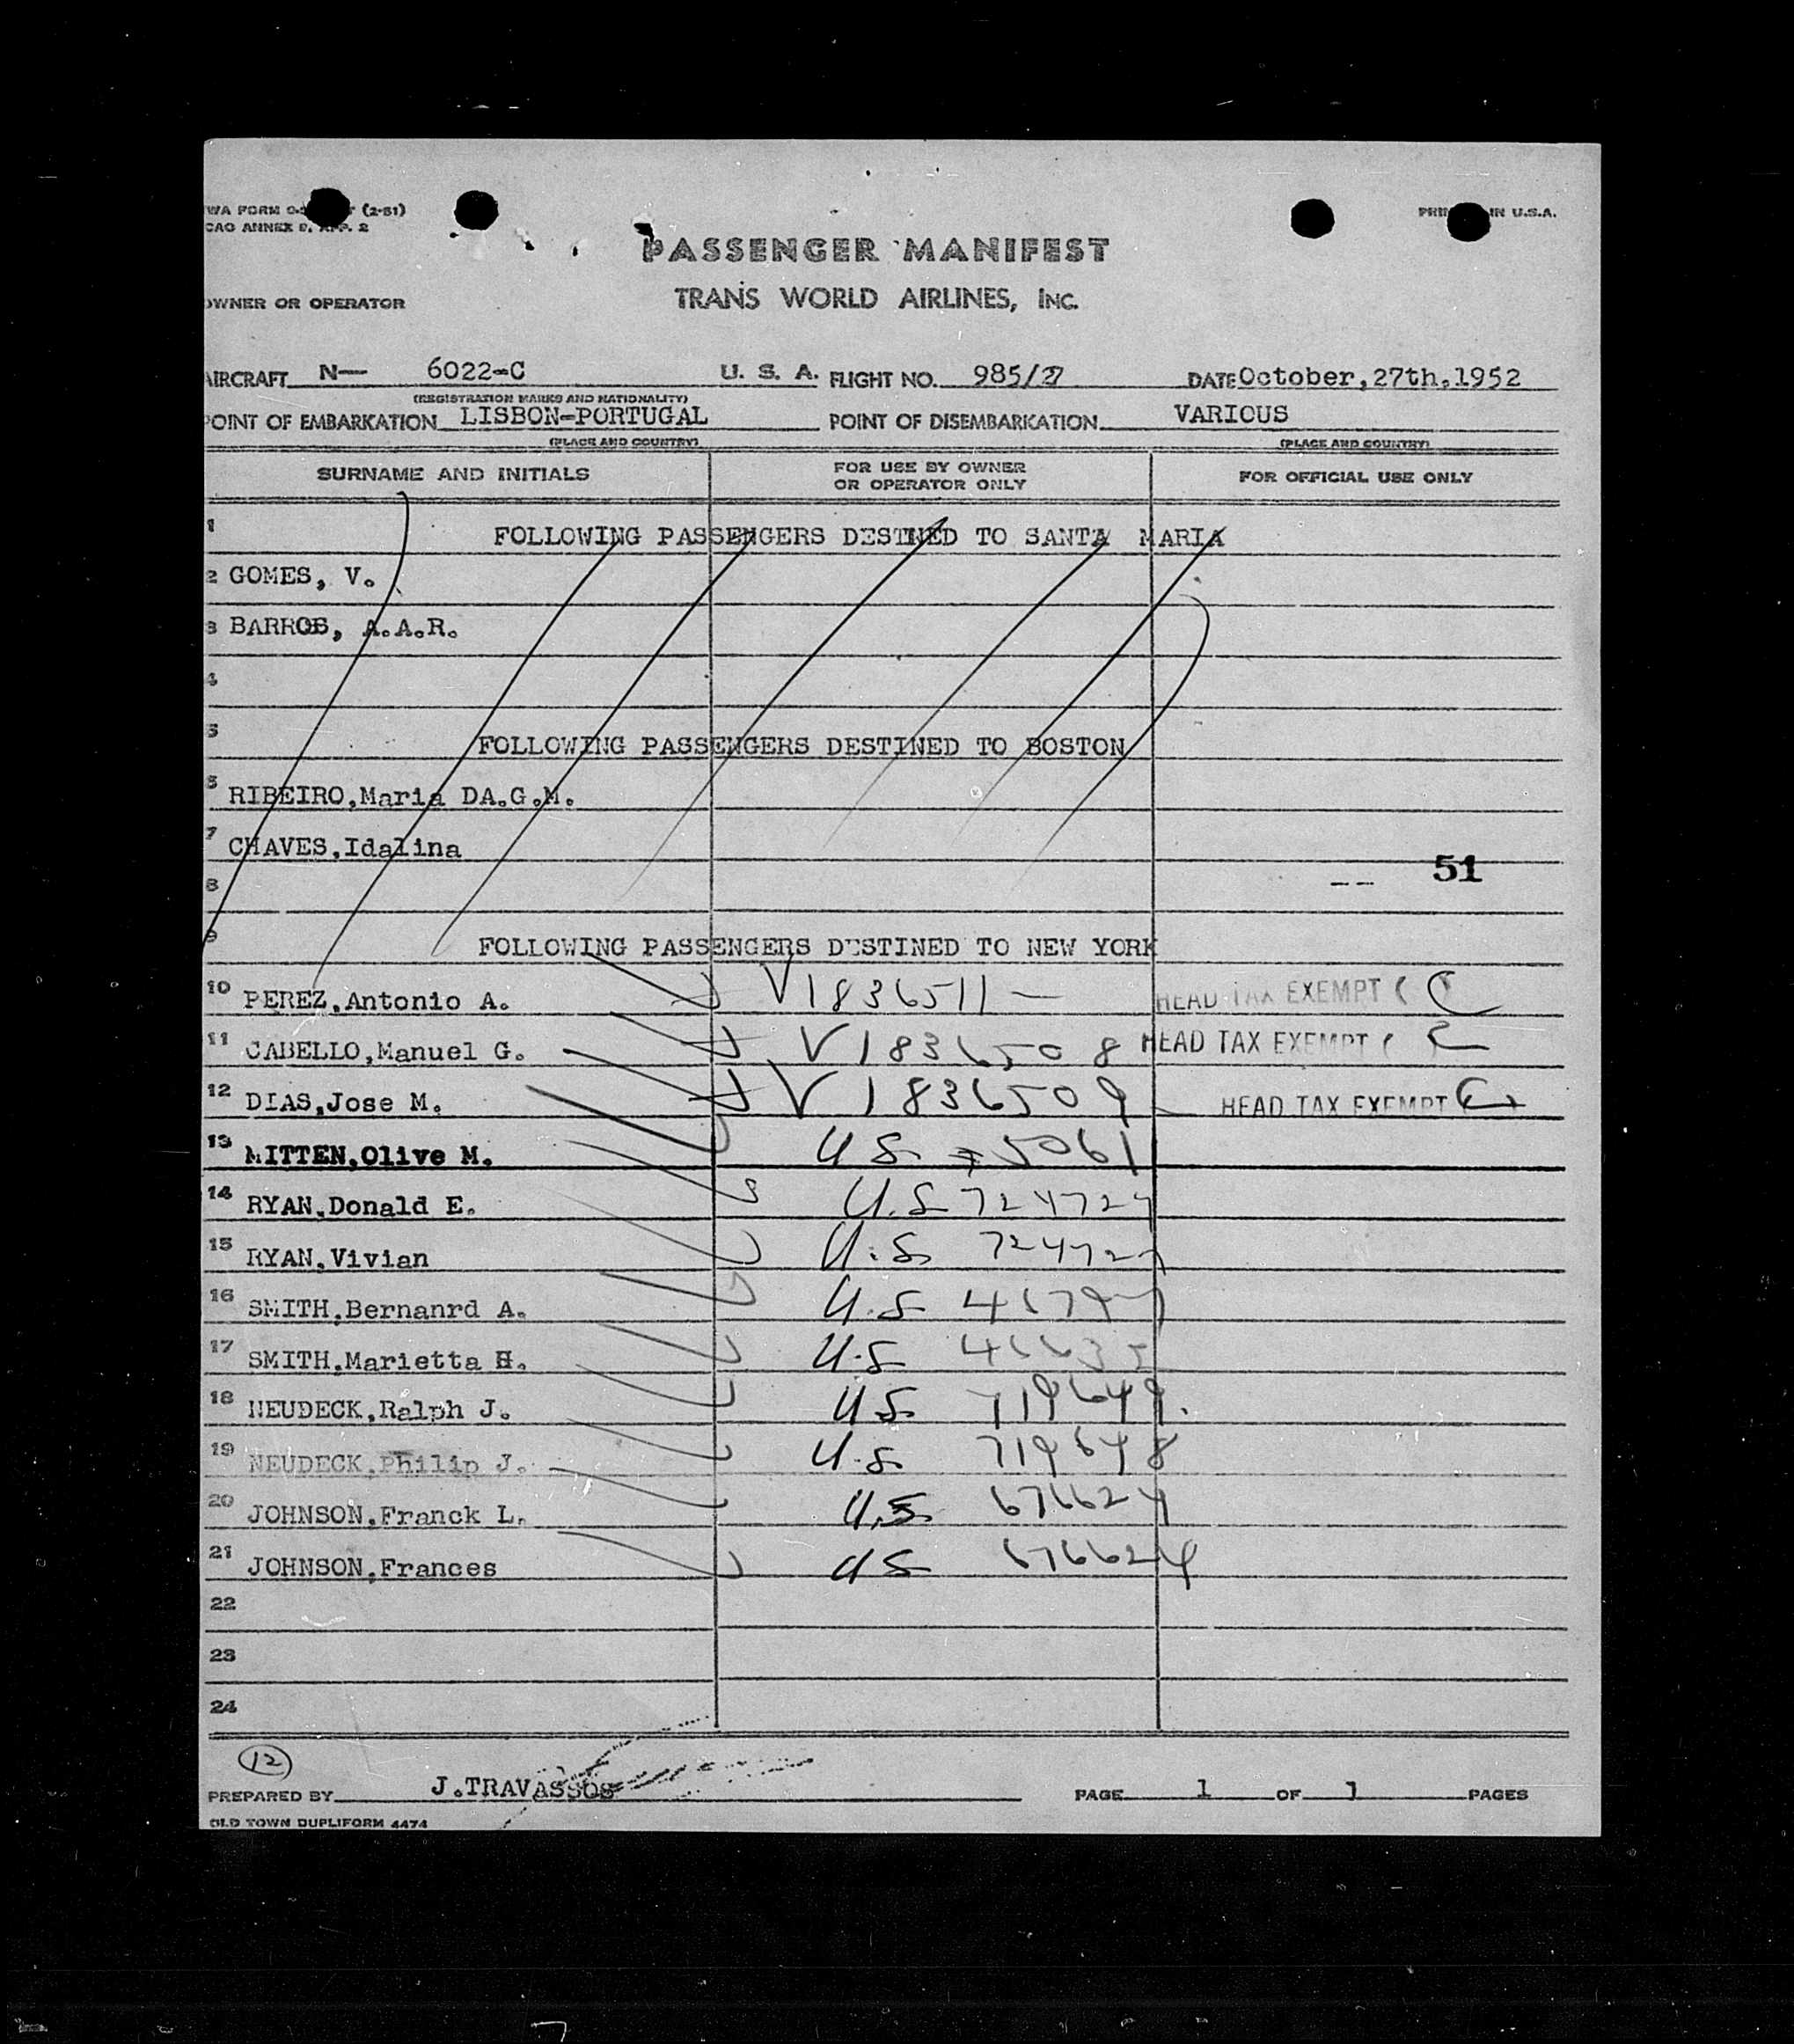 (2-51)
PASSENGER MANIFEST
TRANS WORLD AIRLINES, INC.
OWNER OR OPERATOR
AIRCRAFT N— 6022-C U. S. A. FLIGHT NO. 985/27 DATE October,27th.1952
(REGISTRATION MARKS AND NATIONALITY)
POINT OF EMBARKATION LISBON-PORTUGAL POINT OF DISEMBARKATION VARIOUS
(PLACE AND COUNTRY) (PLACE AND COUNTRY)
SURNAME AND INITIALS FOR USE BY OWNER OR OPERATOR ONLY FOR OFFICIAL USE ONLY
1 FOLLOWING PASSENGERS DESTINED TO SANTA MARIA
2 GOMES, V.
3 BARROS, A.A.R.
4
5 FOLLOWING PASSENGERS DESTINED TO BOSTON
6 RIBEIRO,Maria DA.G.M.
7 CHAVES,Idalina
51
8
9 FOLLOWING PASSENGERS DESTINED TO NEW YORK
10 PEREZ,Antonio A. V1836511 — HEAD TAX EXEMPT ( C
11 CABELLO,Manuel G. V1836508 HEAD TAX EXEMPT ( C
12 DIAS,Jose M. V1836509 HEAD TAX EXEMPT C
13 MITTEN,Olive M. U.S. 75061
14 RYAN,Donald E. U.S 724727
15 RYAN,Vivian U.S. 724727
16 SMITH,Bernanrd A. U.S
17 SMITH,Marietta H. U.S
18 NEUDECK,Ralph J. U.S. 719649.
19 NEUDECK,Philip J. U.S. 719648
20 JOHNSON,Franck L. U.S. 676624
21 JOHNSON,Frances US 676624
22
23
24
12
PREPARED BY J.TRAVASSOS PAGE 1 OF 1 PAGES
OLD TOWN DUPLIFORM 4474